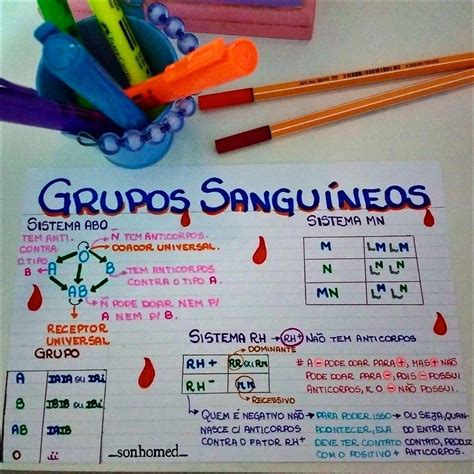 GRUPOS SANGUÍNEOS
SISTEMA ABO
TEM ANTI.
CONTRA
O TIPO
B
Ñ TEM ANTICORPOS.
DOADOR UNIVERSAL.
O
A
B
AB
TEM ANTICORPOS
CONTRA O TIPO A.
Ñ PODE DOAR NEM P/
A NEM P/ B.
RECEPTOR
UNIVERSAL
SISTEMA MN
M
N
MN
GRUPO
A
IAIA OU IAi
B
IBIB OU IBi
AB
IAIB
O
ii
_sonhomed_
SISTEMA RH → RH+ NÃO TEM ANTICORPOS
DOMINANTE
RH+
RH-
RECESSIVO
# A - PODE DOAR PARA +, MAS + NÃO
PODE DOAR PARA -, POIS - POSSUI
ANTICORPOS, E O - NÃO POSSUI.
QUEM É NEGATIVO NÃO
NASCE C/ ANTICORPOS
CONTRA O FATOR RH+
PARA PODER ISSO
ACONTECER, ELA
DEVE TER CONTATO
COM O POSITIVO
OU SEJA, QUANDO
ENTRA EM
CONTATO, PRODUZ
ANTICORPOS.